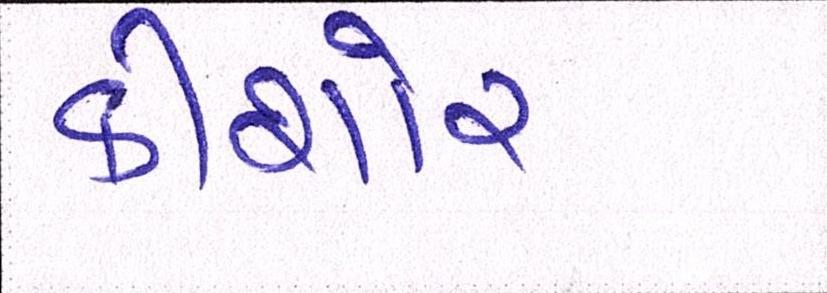 કીશોર